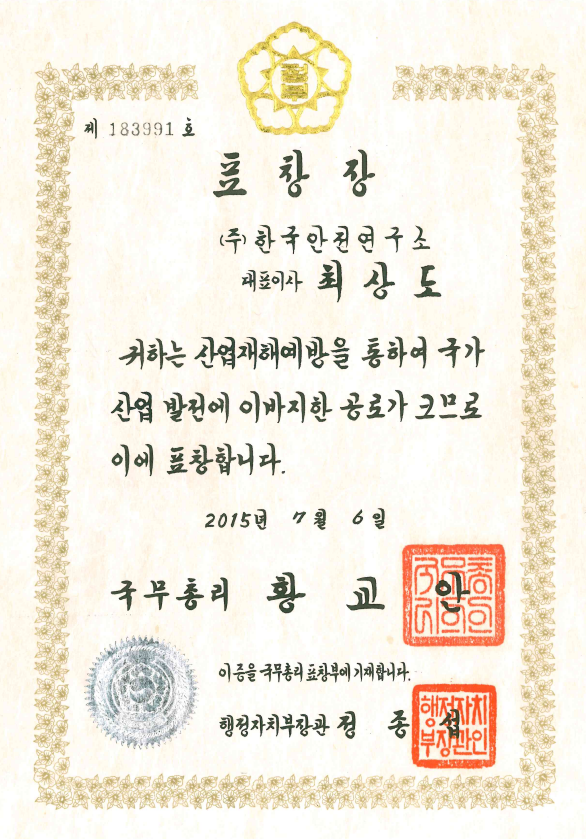 제 183991 호
표창장
(주)한국안전연구소
대표이사 최상도
귀하는 산업재해예방을 통하여 국가
산업 발전에 이바지한 공로가 크므로
이에 표창합니다.
2015년 7월 6일
국무총리 황교안
이 증을 국무총리 표창부에 기재합니다.
행정자치부장관 정종섭
행정자치
부장관인